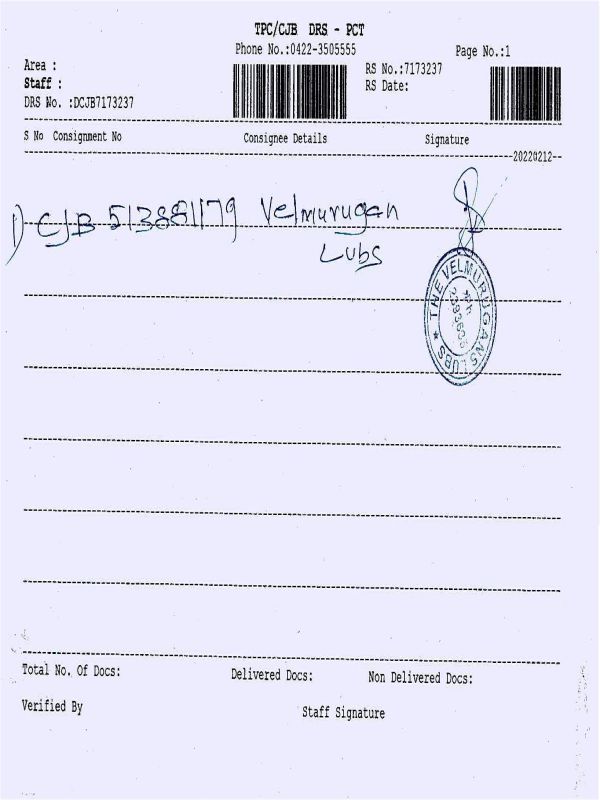 TPC/CJB DRS - PCT
Phone No.:0422-3505555
Page No.:1
Area :
RS No.:7173237
Staff :
RS Date:
DRS No. :DCJB7173237
S No Consignment No Consignee Details Signature
20220212
1) CJB 513881179 Velmurugan
Lubs
THE VELMURUGANS LUBS
Total No. Of Docs: Delivered Docs: Non Delivered Docs:
Verified By Staff Signature